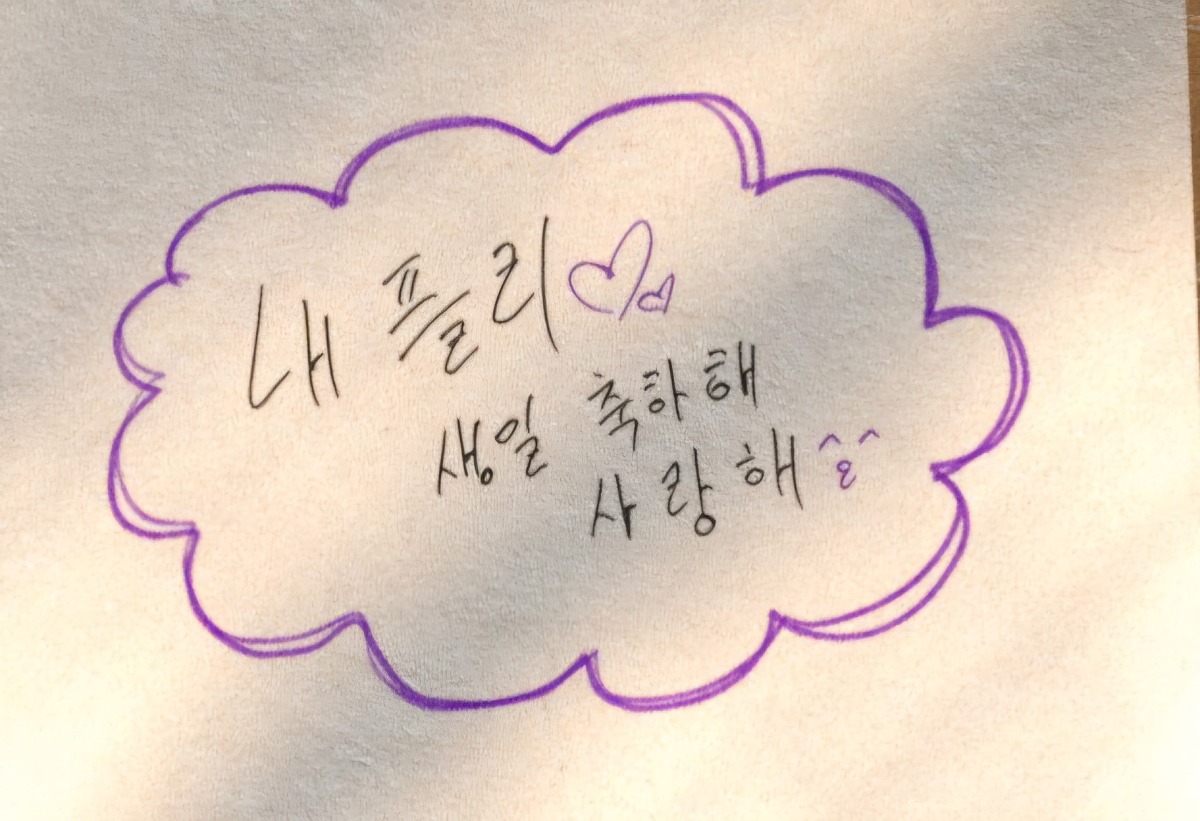 내 플리♡♡
생일 축하해
사랑해 ^ 3 ^